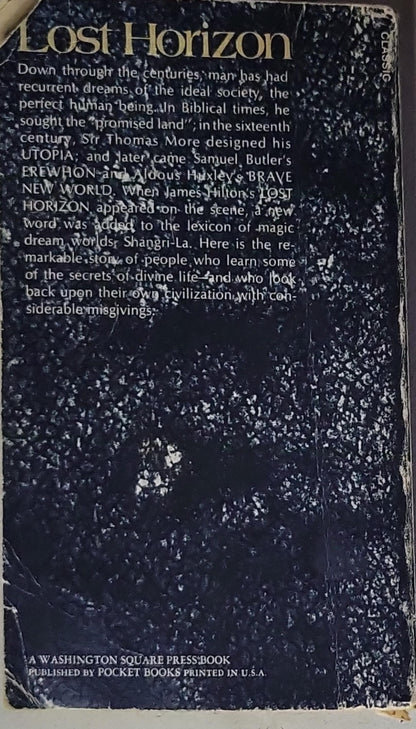 Lost Horizon
CLASSIC
Down through the centuries, man has had
recurrent dreams of the ideal society, the
perfect human being. In Biblical times, he
sought the "promised land"; in the sixteenth
century, Sir Thomas More designed his
UTOPIA; and later came Samuel Butler's
EREWHON and Aldous Huxley's BRAVE
NEW WORLD. When James Hilton's LOST
HORIZON appeared on the scene, a new
word was added to the lexicon of magic
dream worlds: Shangri-La. Here is the re-
markable story of people who learn some
of the secrets of divine life—and who look
back upon their own civilization with con-
siderable misgivings.
A WASHINGTON SQUARE PRESS BOOK
PUBLISHED BY POCKET BOOKS PRINTED IN U.S.A.